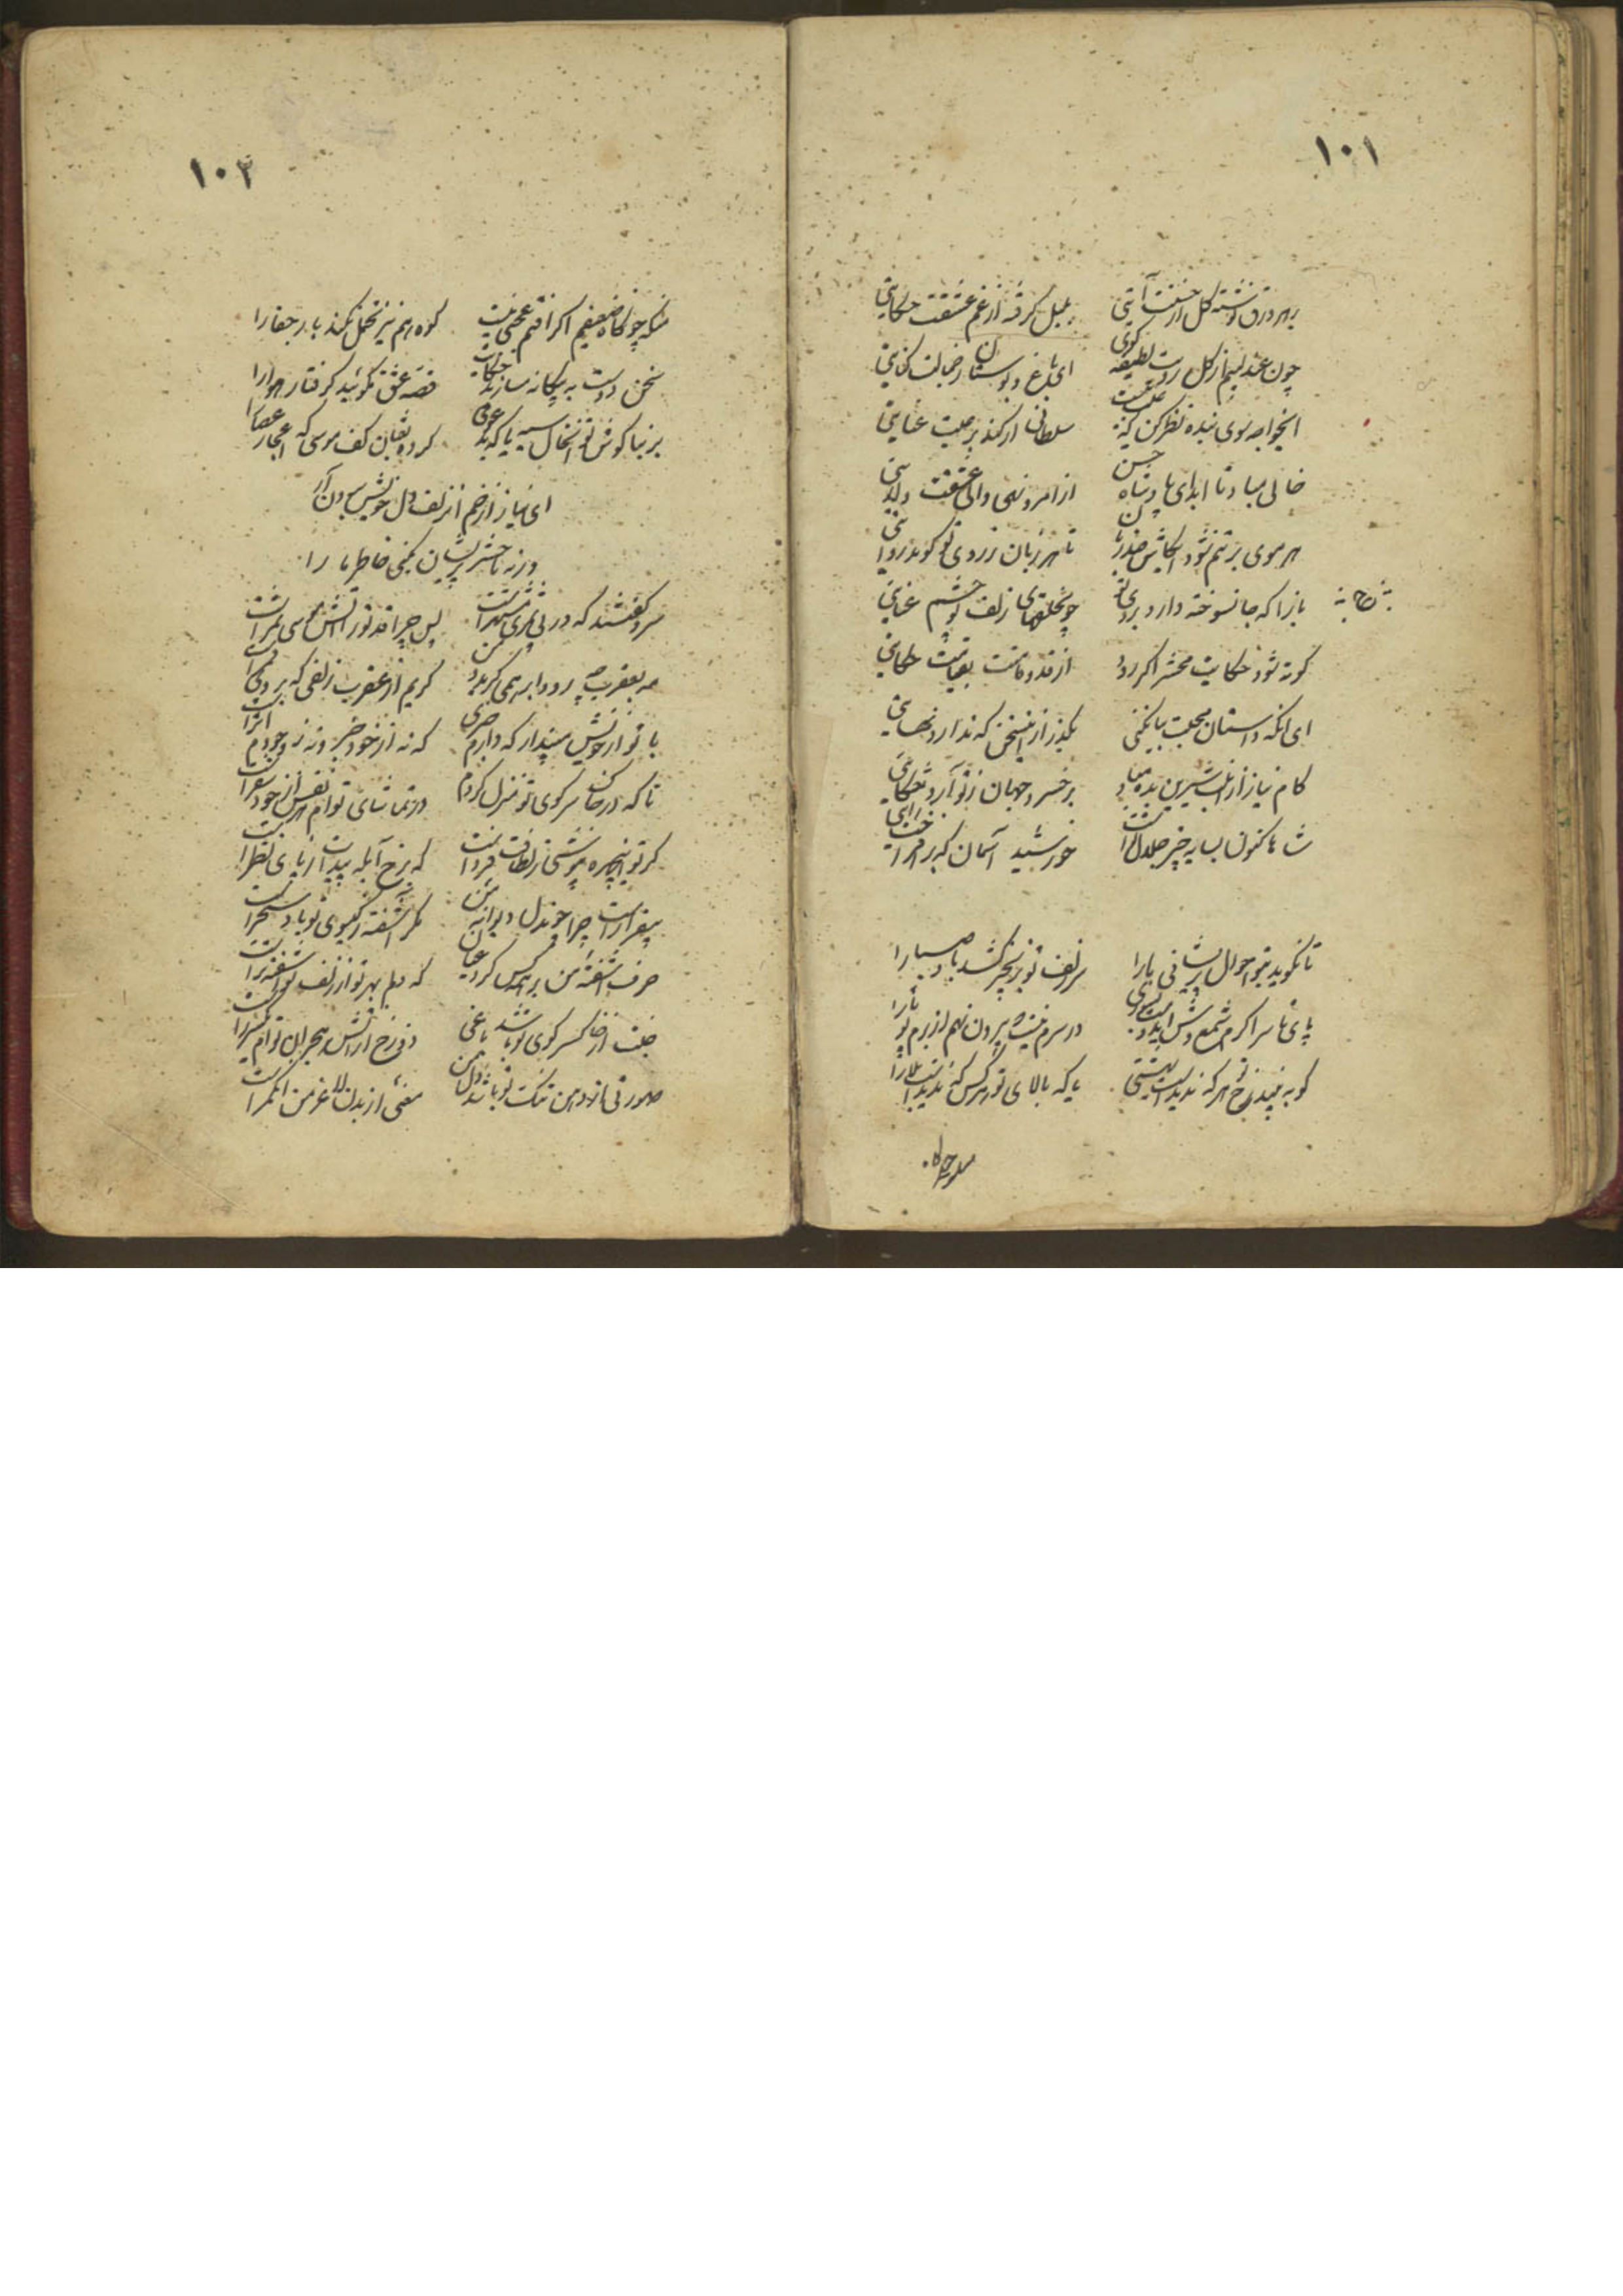 ۱۰۱
بر هر ورق نوشته گل از حسنت آیتی
بلبل گرفته از غم عشقت حکایتی
چون عندلیبم از گل رویت لطیفه گوی
ای باغ و بوستان ز جمالت کنایتی
ایخواجه سوی بنده نظر کن که عیب نیست
سلطان ار کند برعیت عنایتی
خالی مباد تا ابد ای پادشاه حسن
از امر و نهی والی عشقت ولایتی
هر موی بر تنم شود ایکاش صد زبان
تا هر زبان ز روی تو گوید روایتی
بازا که جانسوخته دارد بروی تو
چون حلقهای زلف تو چشم عنایتی
کوته شود حکایت محشر اگر رود
از قد و قامتت بقیامت حکایتی
ای آنکه داستان محبت بیان کنی
بگذر از این سخن که ندارد نهایتی
کام نیاز از لب شیرین بده مباد
بر خسرو جهان ز تو آرد شکایتی
شاها کنون بسایه چتر جلال تست
خورشید آسمان که برافراخت رایتی
تا نگوید بتو احوال پریشانی ما را
سر زلف تو بزنجیر کشد باد صبا را
پای تا سر اگرم شمع وش
در سرم نیست که بیرون نهم از بزم تو پا را
گو به بیند رخ تو هر که ندیدست بهشتی
یا که بالای تو هر کس که ندیدست بلا را
۱۰۲
منکه چون کاه ضعیفم اگر افتم عجبی نیست
کوه هم نیز تحمل نکند بار جفا را
سخن دوست به بیگانه نسازید حکایت
قصه عشق نگوئید گرفتار هوا را
بر بناگوش تو آنخال سیه یا که
کرده ثعبان کف موسی که اعجاز عصا را
ای نیاز از خم آنزلف دل خویش برون آر
ورنه تا حشر پریشان نکنی خاطر ما را
سرو گفتند که در بی ثمری مشتهر است
پس چرا قد تو را آتش موسی ثمر است
مه بعقرب چه رود ابر همی گرید و من
گریم از عقرب زلفی که بروی قمر است
با تو از خویش مپندار که دارم خبری
که نه از خود خبر و نه ز وجودم اثر است
تا که در خاک سر کوی تو منزل کردم
در تماشای توام هر نفس از خود سفر است
گر تو اینچهره بپوشی ز لطافت فرداست
که رخ آبله پیدات ز پای نظر است
بیقرار است چرا چون دل دیوانه من
مگر آشفته ز گیسوی تو باد سحر است
حرف آشفته من بر همه کس کرد عیان
که دلم بهر تو از زلف تو آشفته تر است
جنت از خاک سر کوی تو باشد باغی
دوزخ از آتش هجران توام یک شرر است
صورتی از دهن تنگ تو باشد دل من
معنی از بدن لاغر من آن کمر است